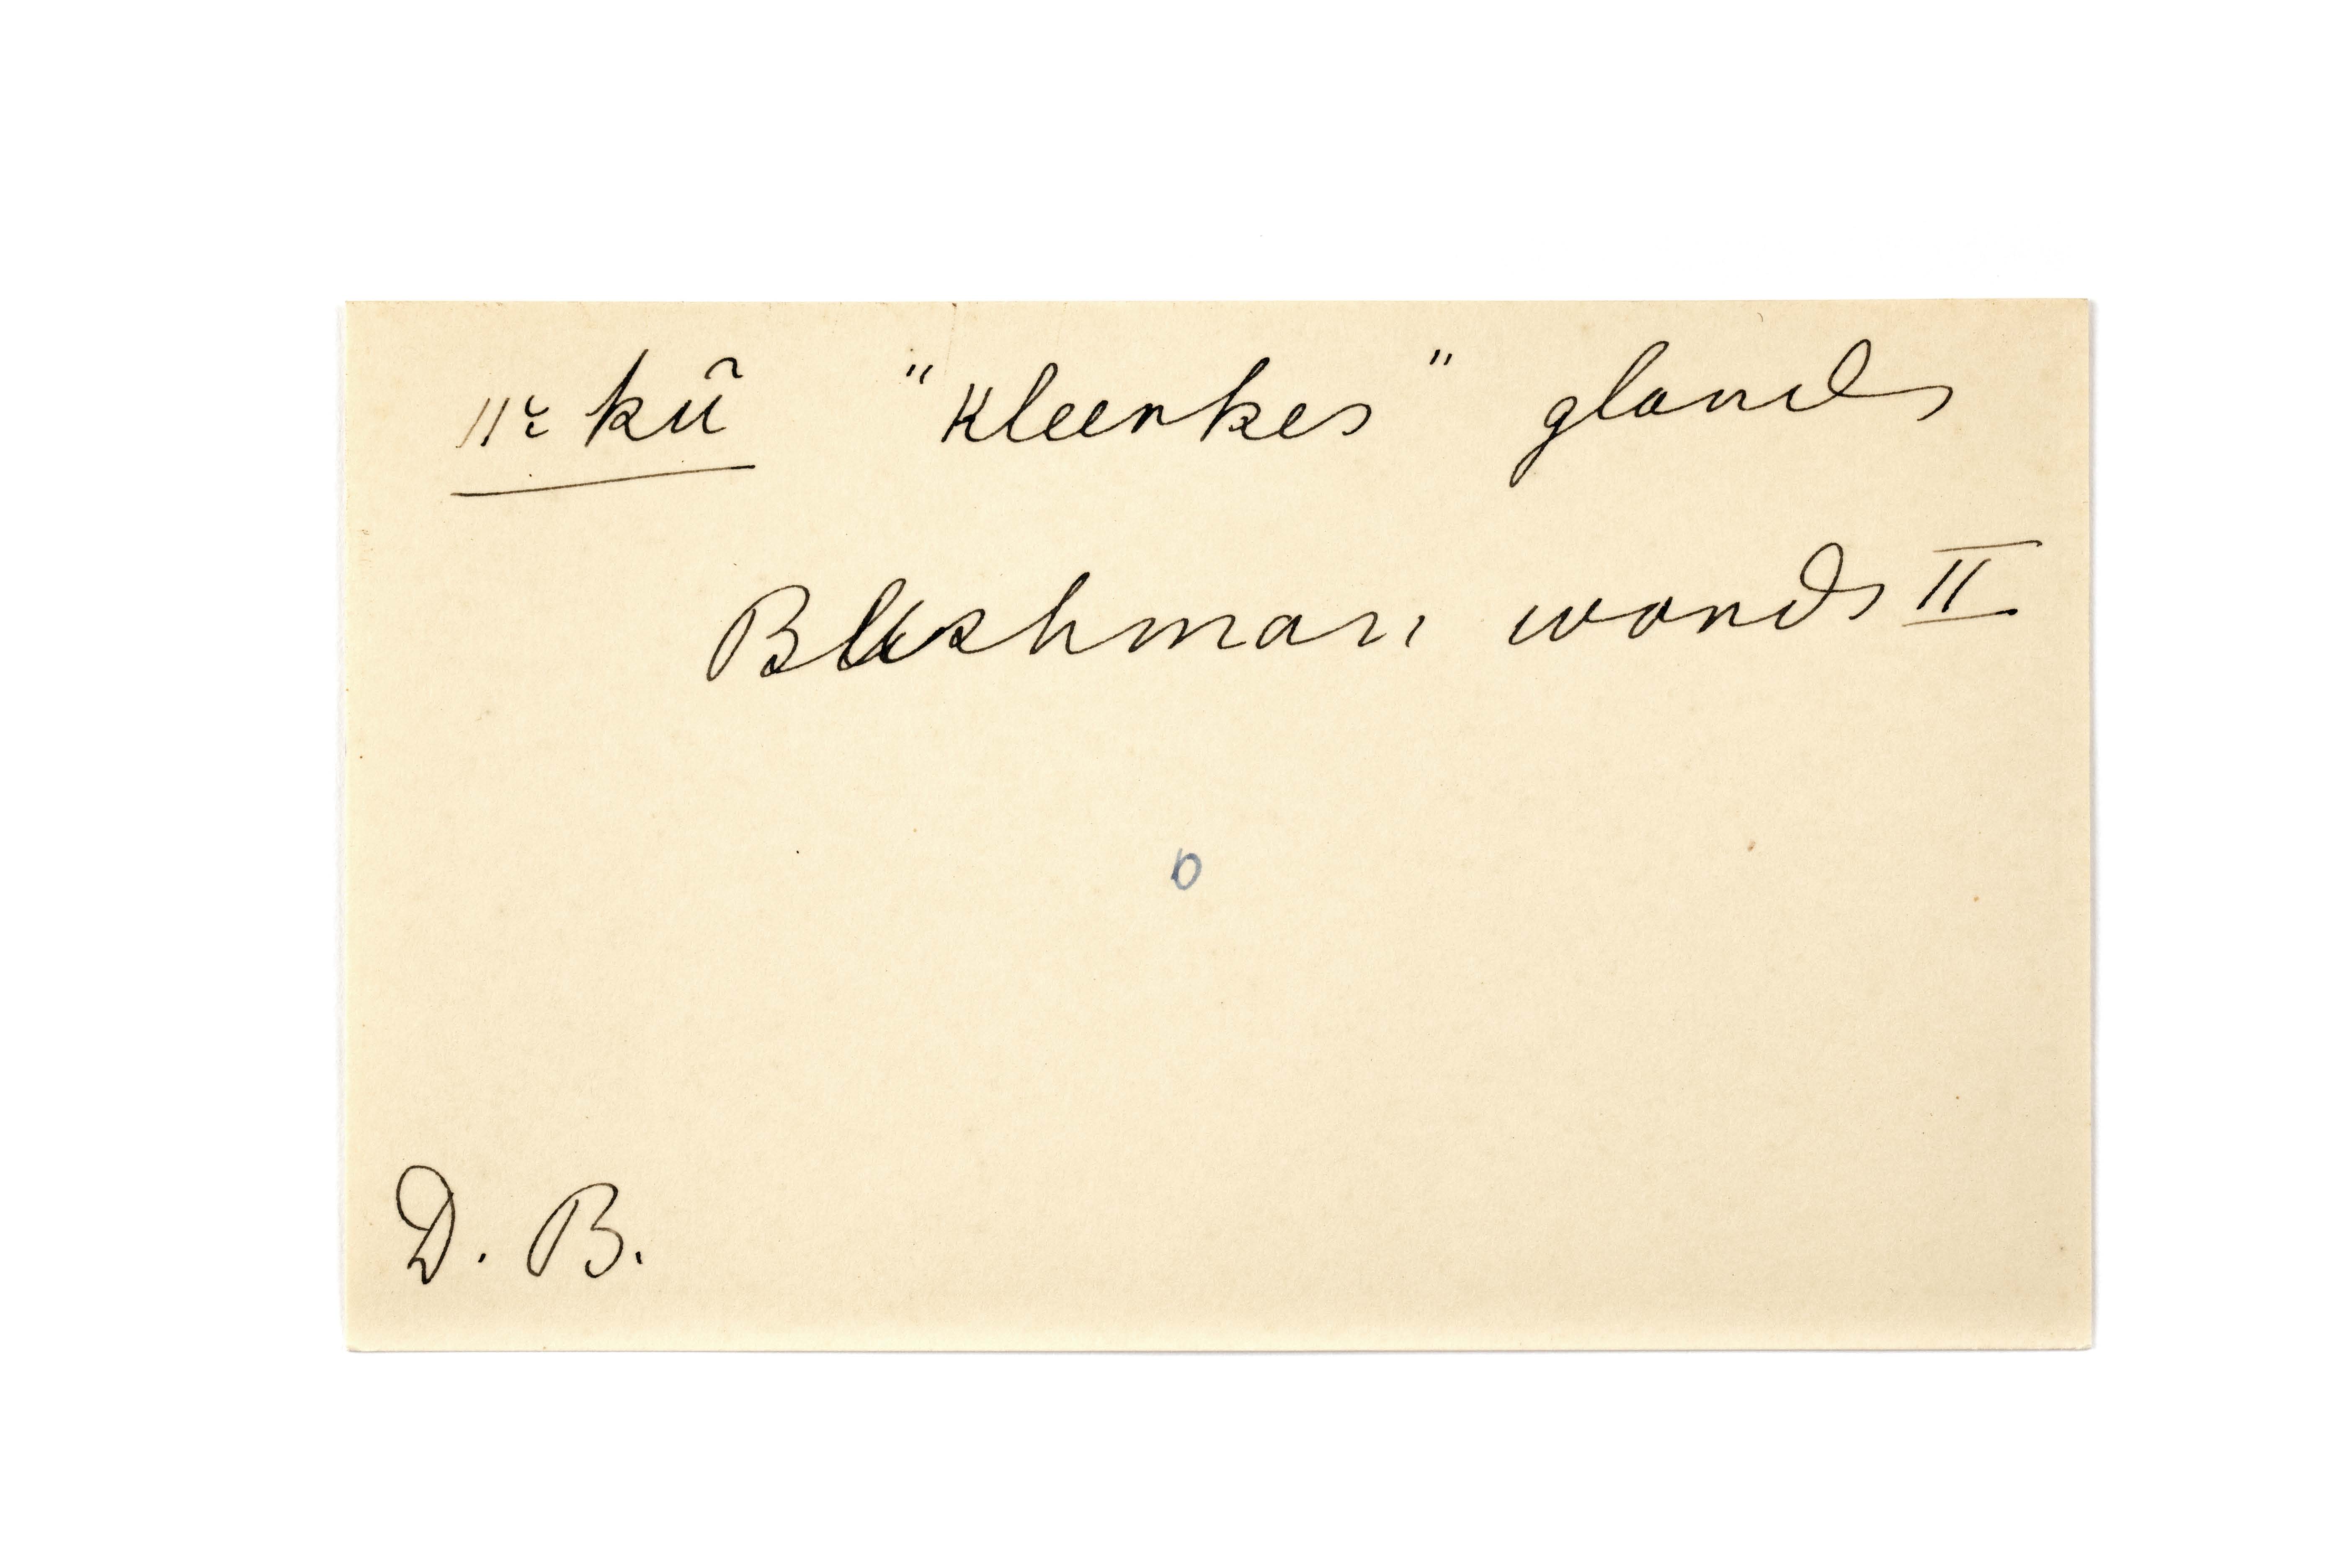 ǁ꞉ kũ "Kleenkes" glands
Bushman words II
D. B.